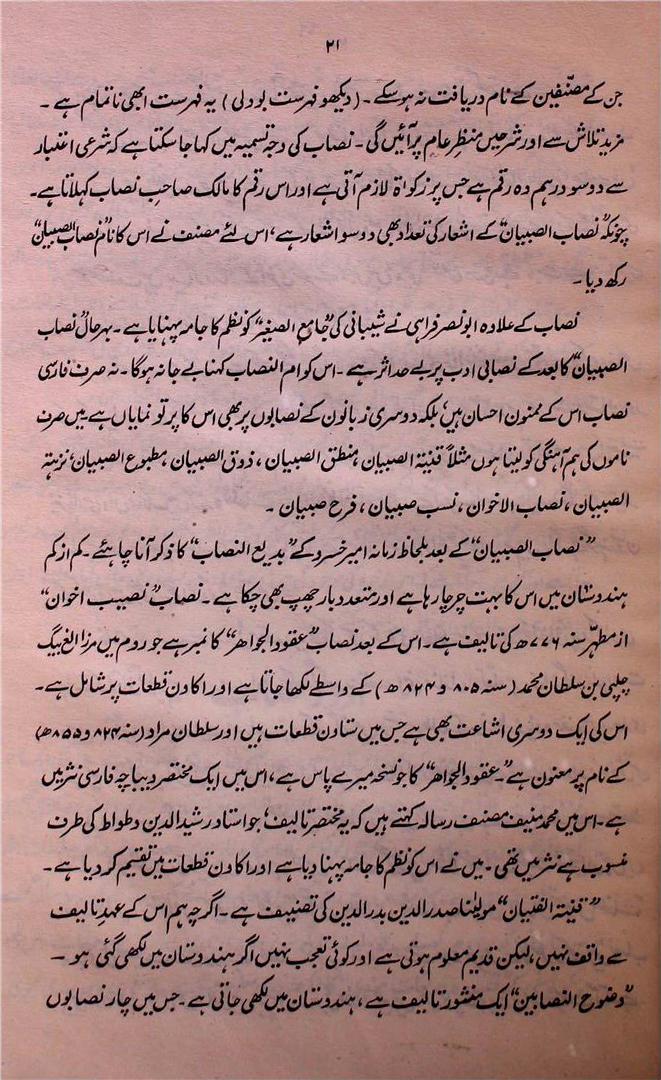 ۲۱
جن کے مصنّفین کے نام دریافت نہ ہو سکے۔ (دیکھو فہرست بودلی) یہ فہرست ابھی ناتمام ہے۔
مزید تلاش سے اور شرحیں منظرِ عام پر آئیں گی۔ نصاب کی وجہ تسمیہ میں کہا جا سکتا ہے کہ شرعی اعتبار
سے دو سو درہم وہ رقم ہے جس پر زکواۃ لازم آتی ہے اور اس رقم کا مالک صاحبِ نصاب کہلاتا ہے۔
چونکہ ”نصاب الصبیان“ کے اشعار کی تعداد بھی دو سو اشعار ہے، اس لئے مصنف نے اس کا نام ”نصاب الصبیان“
رکھ دیا۔
نصاب کے علاوہ ابونصر فراہی نے شیبانی کی ”جامع الصغیر“ کو نظم کا جامہ پہنایا ہے۔ بہرحال ”نصاب
الصبیان“ کا بعد کے نصابی ادب پر بے حد اثر ہے۔ اس کو ام النصاب کہنا بے جا نہ ہوگا۔ نہ صرف فارسی
نصاب اس کے ممنون احسان ہیں بلکہ دوسری زبانوں کے نصابوں پر بھی اس کا پرتو نمایاں ہے۔ میں صرف
ناموں کی ہم آہنگی کو لیتا ہوں مثلاً قنیۃ الصبیان، منطق الصبیان، ذوق الصبیان، مطبوع الصبیان، نزہتہ
الصبیان، نصاب الاخوان، نسب صبیان، فرح صبیان۔
”نصاب الصبیان“ کے بعد بلحاظ زمانہ امیر خسرو کے ”بدیع النصاب“ کا ذکر آنا چاہئے۔ کم از کم
ہندوستان میں اس کا بہت چرچا رہا ہے اور متعدد بار چھپ بھی چکا ہے۔ نصاب ”نصیب اخوان“
از مطہّر سنہ ۷۷۶ھ کی تالیف ہے۔ اس کے بعد نصاب ”عقود الجواہر“ کا نمبر ہے جو روم میں مرزا الغ بیگ
چلپی بن سلطان محمد (سنہ ۸۰۵ و ۸۲۴ھ) کے واسطے لکھا جاتا ہے اور اکاون قطعات پر شامل ہے۔
اس کی ایک دوسری اشاعت بھی ہے جس میں ستاون قطعات ہیں اور سلطان مراد (سنہ ۸۲۴ و ۸۵۵ھ)
کے نام پر معنون ہے۔ ”عقود الجواہر“ کا جو نسخہ میرے پاس ہے، اس میں ایک مختصر دیباچہ فارسی نثر میں
ہے۔ اس میں محمد منیف مصنف رسالہ کہتے ہیں کہ یہ مختصر تالیف جو استاد رشید الدین وطواط کی طرف
منسوب ہے نثر میں تھی۔ میں نے اس کو نظم کا جامہ پہنا دیا ہے اور اکاون قطعات میں تقسیم کر دیا ہے۔
”قنیۃ الفتیان“ مولیٰنا صدر الدین بدر الدین کی تصنیف ہے۔ اگرچہ ہم اس کے عہد تالیف
سے واقف نہیں، لیکن قدیم معلوم ہوتی ہے اور کوئی تعجب نہیں اگر ہندوستان میں لکھی گئی ہو۔
”وضوح النصابین“ ایک منشور تالیف ہے، ہندوستان میں لکھی جاتی ہے۔ جس میں چار نصابوں